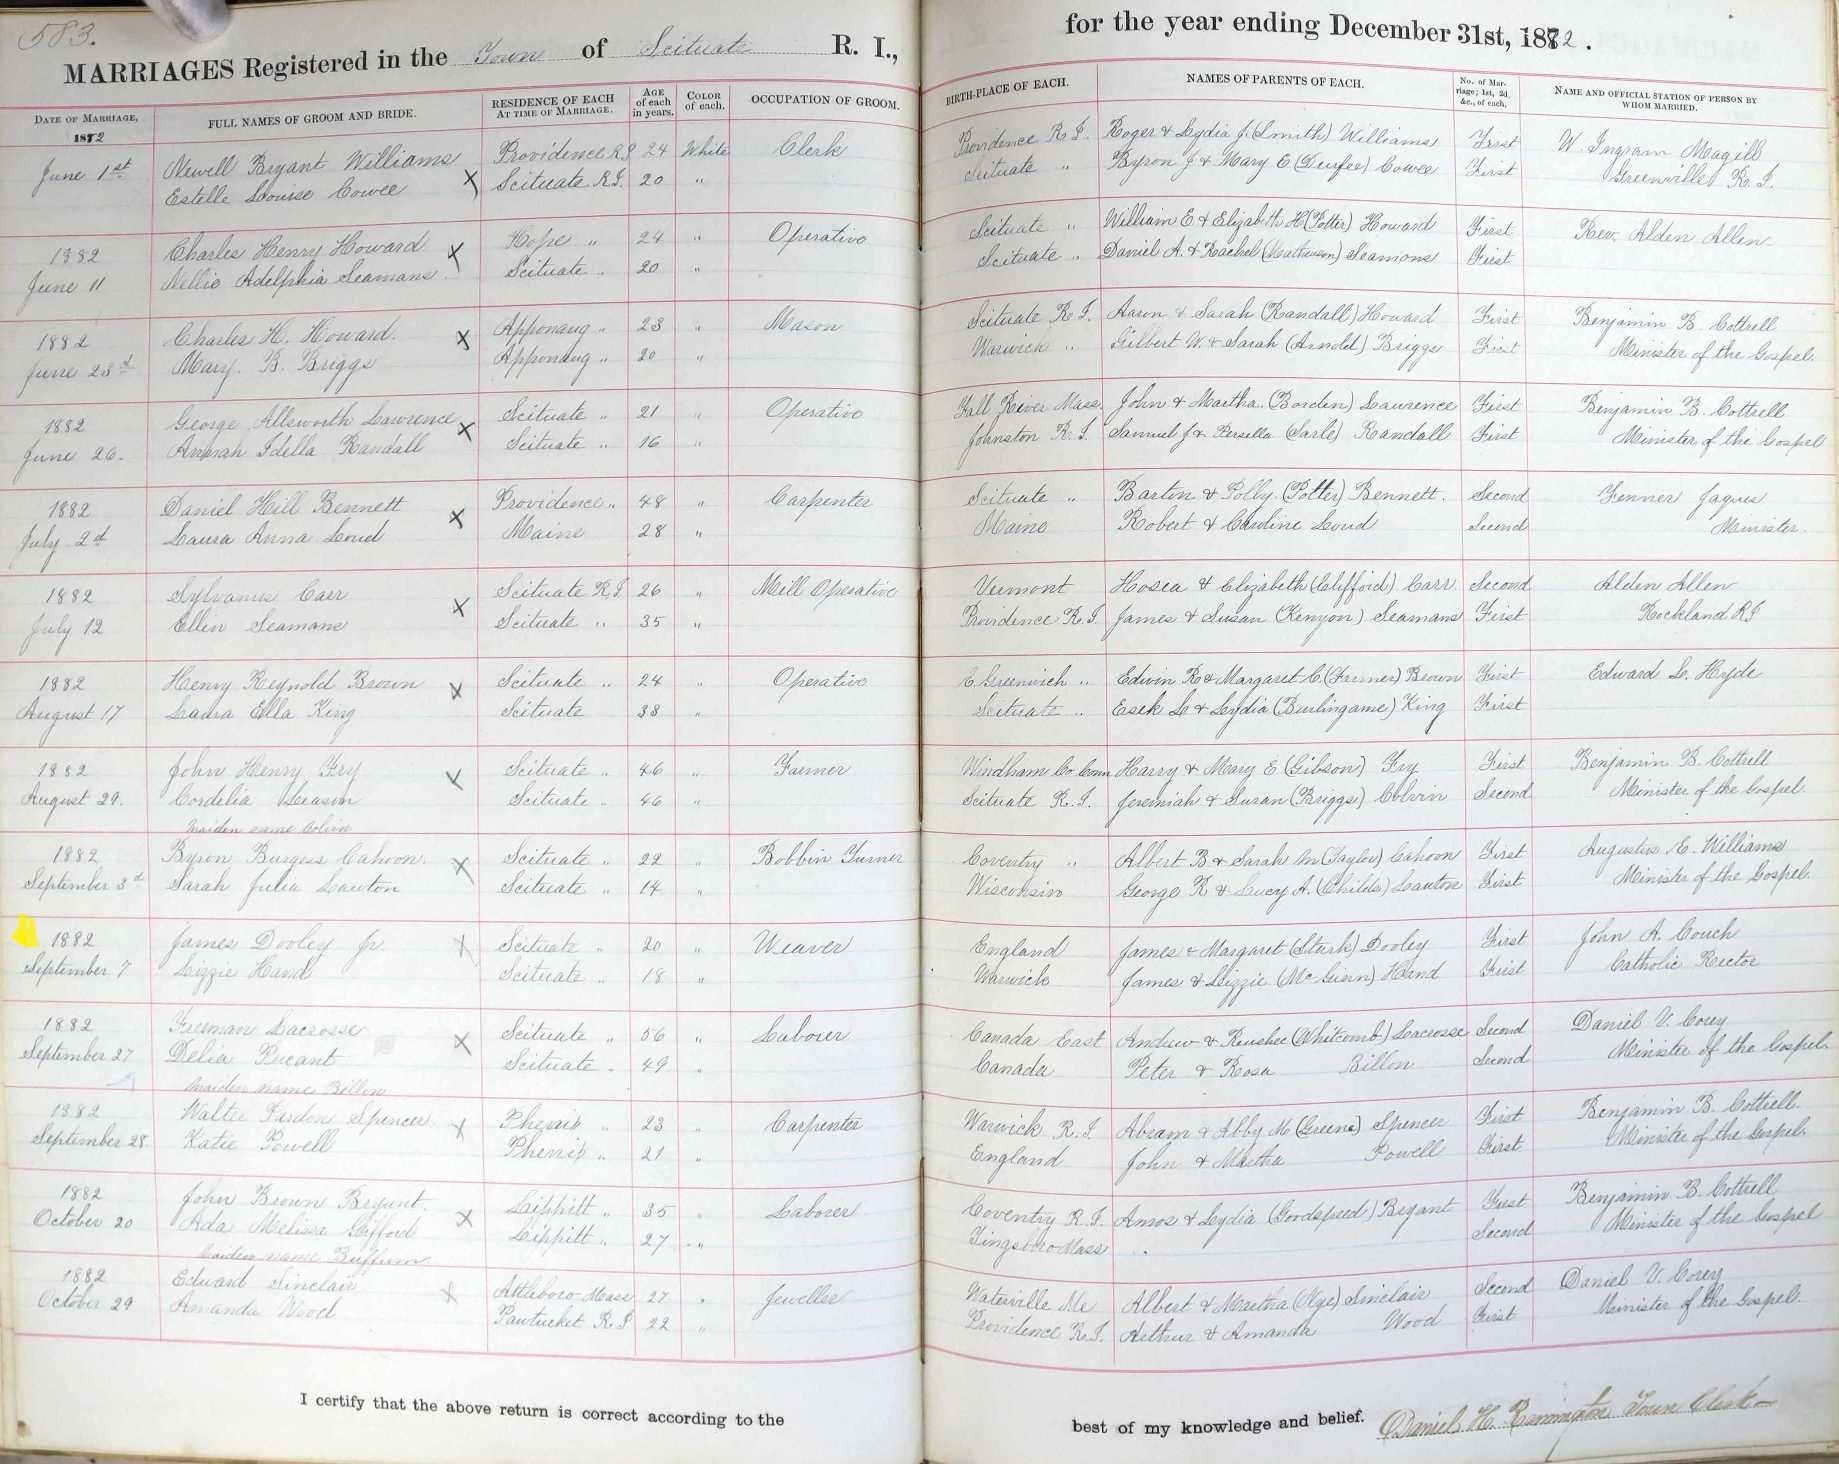 583.
MARRIAGES Registered in the Town of Scituate R. I., for the year ending December 31st, 1882.
DATE OF MARRIAGE, 1882
FULL NAMES OF GROOM AND BRIDE.
RESIDENCE OF EACH AT TIME OF MARRIAGE.
AGE of each in years.
COLOR of each.
OCCUPATION OF GROOM.
BIRTH-PLACE OF EACH.
NAMES OF PARENTS OF EACH.
No. of Marriage; 1st, 2d, &c., of each.
NAME AND OFFICIAL STATION OF PERSON BY WHOM MARRIED.
June 1st Newell Bryant Williams Providence R.I 24 White Clerk Providence R.I. Roger & Lydia J. (Smith) Williams First W. Ingram Magill
Estelle Louise Cowee X Scituate R.I. 20 " Scituate " Byron J & Mary E (Durfee) Cowee First Greenville R.I.
1882 Charles Henry Howard X Hope " 24 " Operative Scituate " William E & Elizabeth H (Potter) Howard First Rev. Alden Allen
June 11 Nellie Adelphia Seamans Scituate " 20 " Scituate " Daniel A. & Rachel (Mathewson) Seamons First
1882 Charles H. Howard. X Apponaug " 23 " Mason Scituate R.I. Aaron & Sarah (Randall) Howard First Benjamin B. Cottrell
June 23d Mary. B. Briggs Apponaug " 20 " Warwick " Gilbert W. & Sarah (Arnold) Briggs First Minister of the Gospel.
1882 George Allsworth Lawrence X Scituate " 21 " Operative Fall River Mass. John & Martha (Borden) Lawrence First Benjamin B. Cottrell
June 26. Annah Idella Randall Scituate " 16 " Johnston R.I. Samuel J & Persella (Sarle) Randall First Minister of the Gospel
1882 Daniel Hill Bennett X Providence " 48 " Carpenter Scituate " Barton & Polly (Potter) Bennett. Second Fenner Jaques
July 2d Laura Anna Loud Maine 28 " Maine Robert & Caroline Loud Second Minister.
1882 Sylvanus Carr X Scituate R.I 26 " Mill Operative Vermont Hosea & Elizabeth (Clifford) Carr Second Alden Allen
July 12 Ellen Seamans Scituate " 35 " Providence R.I. James & Susan (Kenyon) Seamans First Rockland RI
1882 Henry Reynold Brown X Scituate " 24 " Operative E. Greenwich " Edwin R & Margaret C. (Farmer) Brown First Edward L. Hyde
August 17 Laura Ella King Scituate 38 " Scituate " Esek L & Lydia (Burlingame) King First
1882 John Henry Fry X Scituate " 46 " Farmer Windham Co Conn Harry & Mary E (Gibson) Fry First Benjamin B. Cottrell
August 29. Cordelia Season Scituate " 46 " Scituate R.I. Jeremiah & Susan (Briggs) Colvin Second Minister of the Gospel.
Maiden name Colvin
1882 Byron Burgess Cahoon. X Scituate " 22 " Bobbin Turner Coventry " Albert B & Sarah M (Taylor) Cahoon First Augustus E. Williams
September 3d Sarah Julia Lawton Scituate " 14 " Wisconsin George R & Lucy A. (Childs) Lawton First Minister of the Gospel.
1882 James Dooley Jr. X Scituate " 20 " Weaver England James & Margaret (Stark) Dooley First John A. Couch
September 7 Lizzie Hand Scituate " 18 " Warwick James & Lizzie (McGinn) Hand First Catholic Rector
1882 Freeman Lacrosse X Scituate " 56 " Laborer Canada East Andrew & (Whitcomb) Lacrosse Second Daniel V. Corey
September 27 Delia Pecant Scituate " 49 " Canada Peter & Rosa Billon Second Minister of the Gospel.
Maiden name Billon
1882 Walter Spencer X Phenix " 23 " Carpenter Warwick R.I Abram & Abby M (Greene) Spencer First Benjamin B. Cottrell.
September 28. Katie Powell Phenix " 21 " England John & Martha Powell First Minister of the Gospel.
1882 John Brown Bryant. X Lippitt " 35 " Laborer Coventry R.I. Amos & Lydia (Goodspeed) Bryant First Benjamin B. Cottrell
October 20 Ada Melissa Gifford Lippitt " 27 " Tingsboro Mass " Second Minister of the Gospel
Maiden name Buffum
1882 Edward Sinclair X Attleboro Mass 27 " Jeweller Waterville Me Albert & Martha Sinclair Second Daniel V. Corey
October 29 Amanda Wood Pawtucket R.I 22 " Providence R.I. Arthur & Amanda Wood First Minister of the Gospel.
I certify that the above return is correct according to the best of my knowledge and belief. Daniel H. Remington Town Clerk